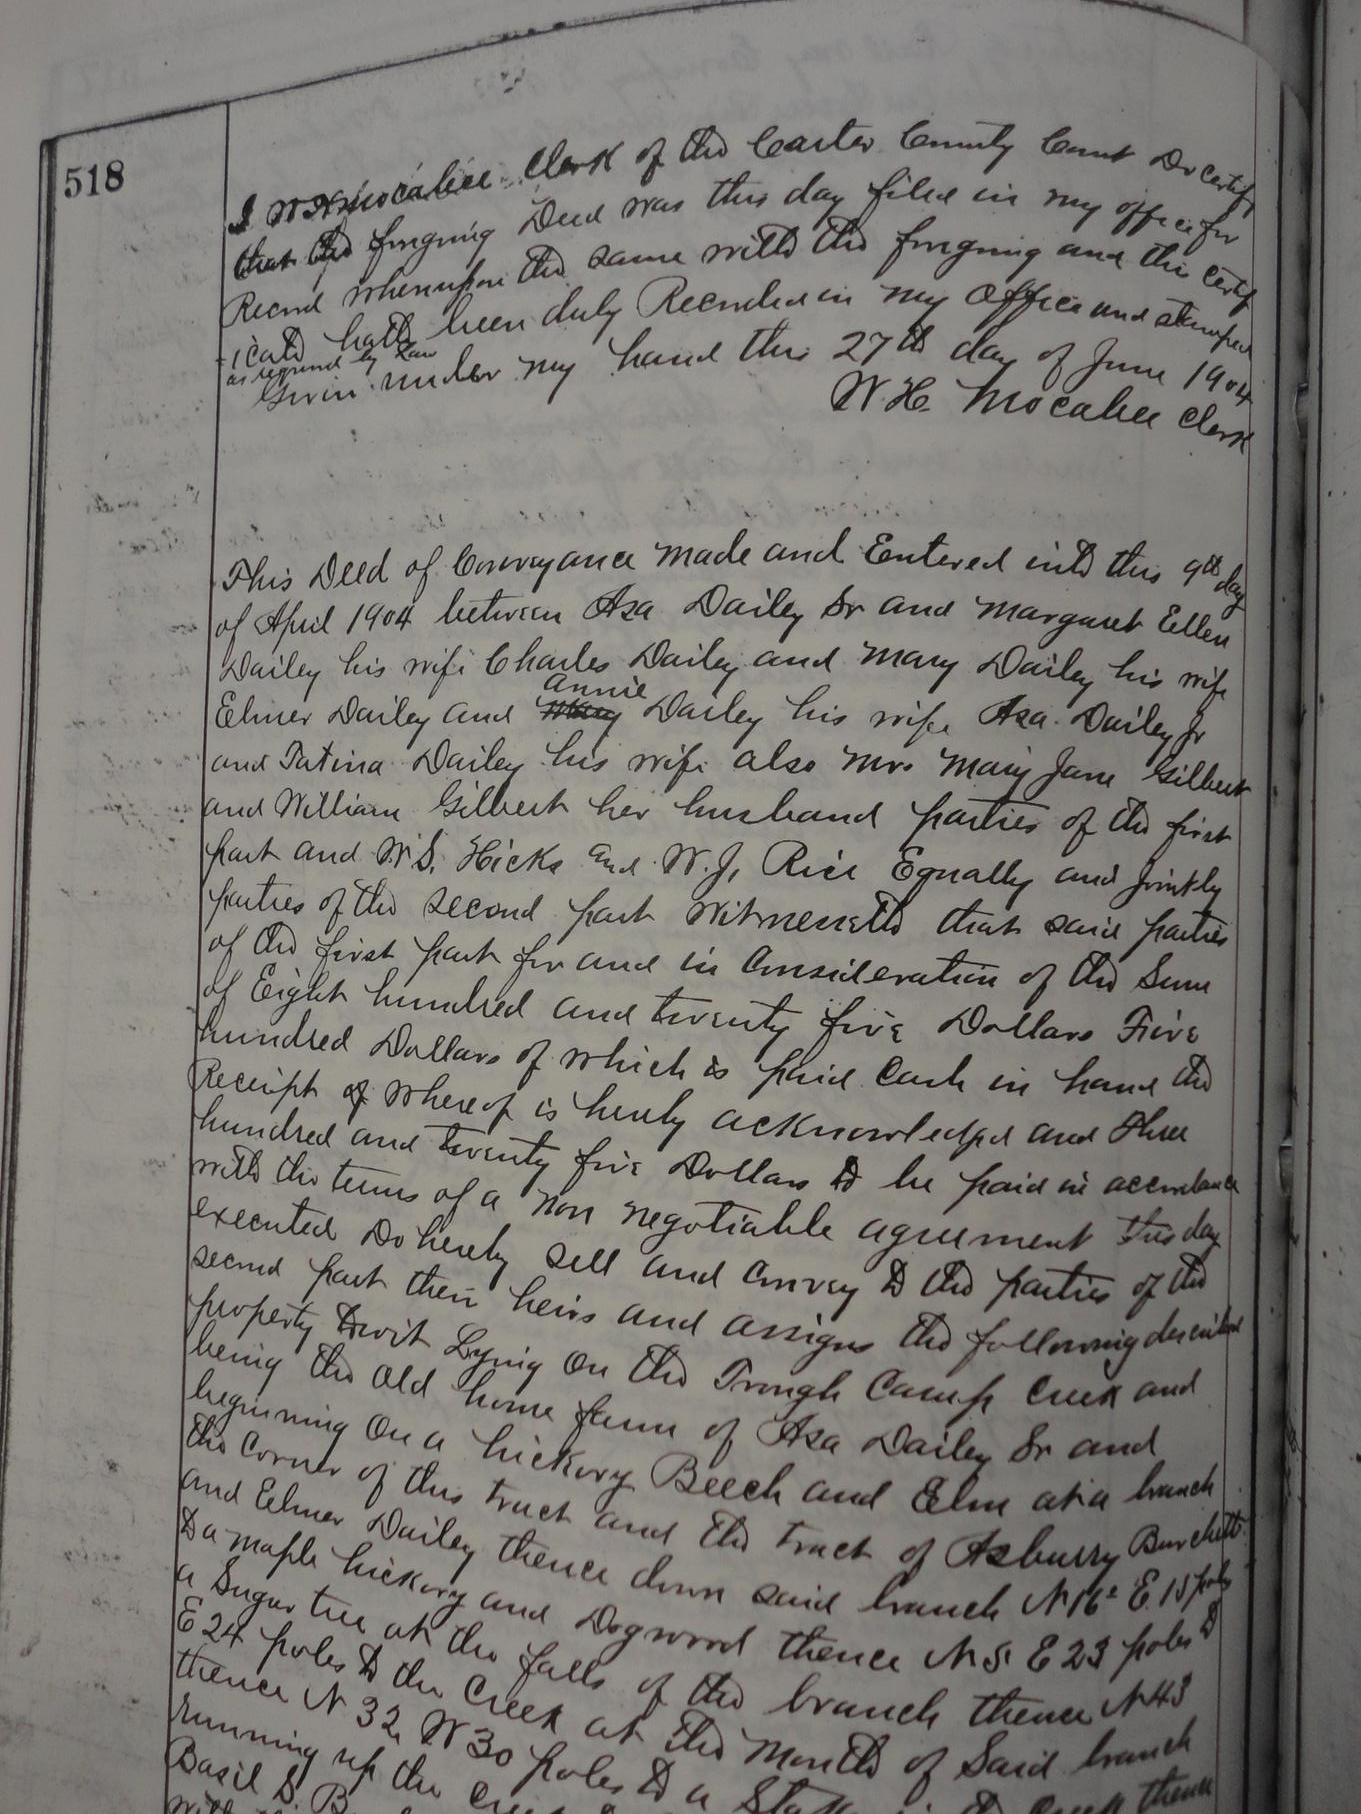 518
I W H Mocabee Clerk of the Carter County Court Do certify
that the forgoing Deed was this day filed in my office for
Record whereupon the same with the forgoing and this certif
-icate hath been duly Recorded in my Office and stamped
as required by law
Given under my hand this 27th day of June 1904
W. H. Mocabee Clerk
This Deed of Conveyance made and Entered into this 9th day
of April 1904 between Asa Dailey Sr and Margaret Ellen
Dailey his wife Charles Dailey and Mary Dailey his wife
annie
Elmer Dailey and Mary Dailey his wife Asa Dailey Jr
and Tatina Dailey his wife also Mrs Mary Jane Gilbert
and William Gilbert her husband parties of the first
part and W. S. Hicks and W. J. Rice Equally and Jointly
parties of the second part Witnesseth that said parties
of the first part for and in Consideration of the Sum
of Eight hundred and twenty five Dollars Five
hundred Dollars of which is paid Cash in hand the
Receipt of whereof is hereby acknowledged and three
hundred and twenty five Dollars to be paid in accordance
with the terms of a non negotiable agreement this day
executed Do hereby sell and convey to the parties of the
second part their heirs and assigns the following described
property towit Lying On the Trough Camp Creek and
being the old home farm of Asa Dailey Sr and
beginning On a hickory Beech and Elm at a branch
the Corner of this tract and the tract of Asburry Burchett
and Elmer Dailey thence down said branch N 16° E 15 poles
to a maple hickory and Dogwood thence N 51 E 23 poles to
a Sugar tree at the falls of the branch thence N 43
E 24 poles to the Creek at the Mouth of Said branch
thence N 32 W 30 poles to a Stake in the Creek thence
running up the Creek
Basil